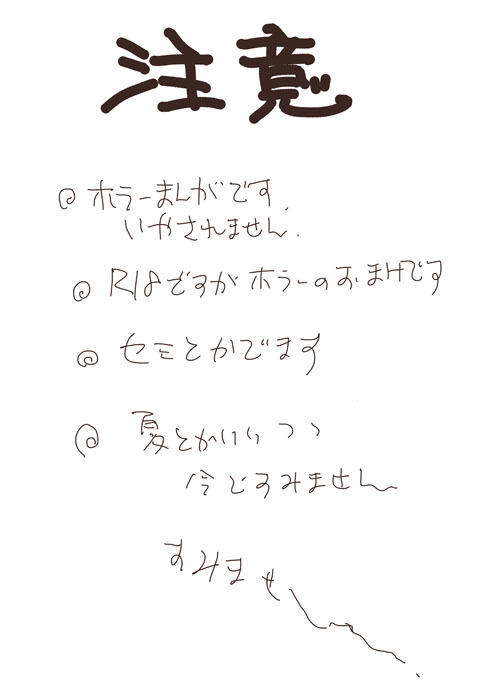 注意
ホラーまんがです。
いやされません。
R18ですがホラーのおまけです
セミとかでます
夏とかいいつつ
今ですみません
すみません